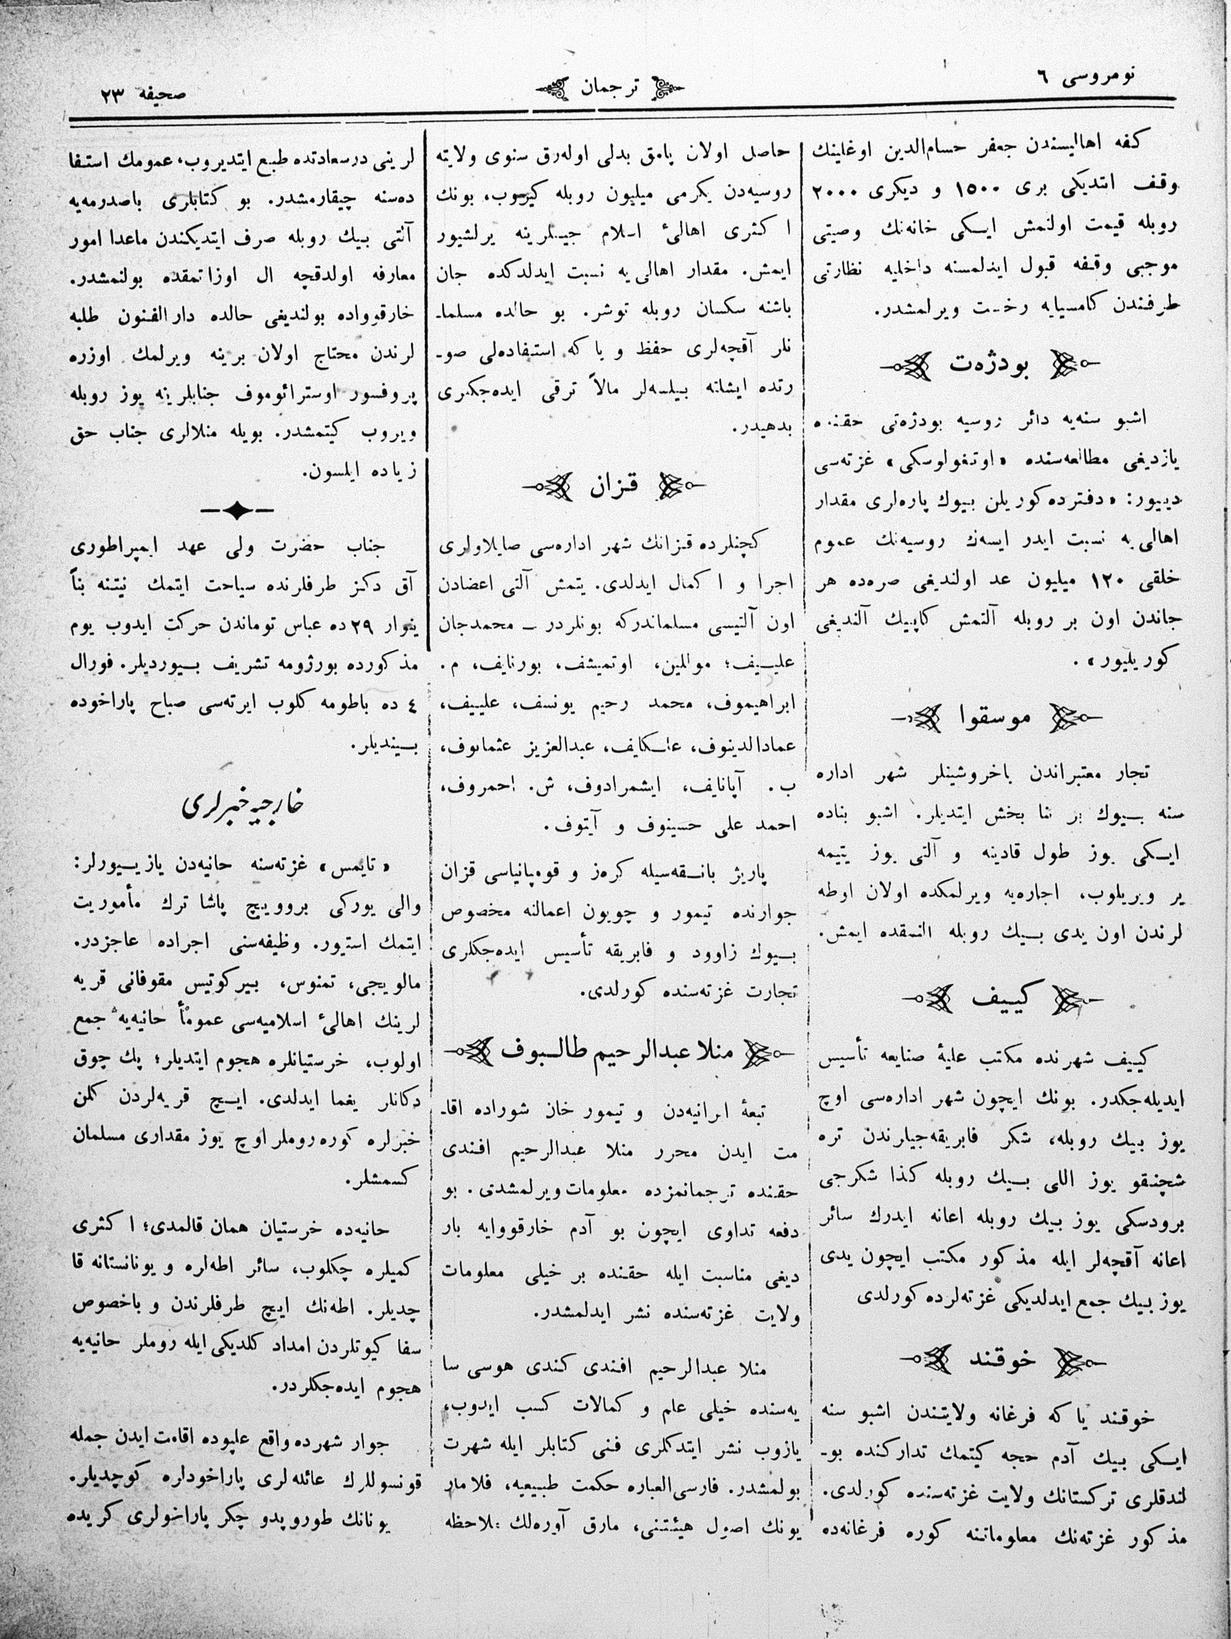 نومروسی ٦
ترجمان
صحیفه ٢٣
كفه اهالیسندن جعفر حسام‌الدین اوغلینك
وقف ایتدیكی بری ١٥٠٠ و دیكری ٢٠٠٠
روبله قیمت اولنمش ایـكی خانه‌نك وصیتی
موجبی وقـفـه قبول ایدلمسنه داخلیه نظارتی
طرفندن كامسیایه رخصت ویرلمشدر.
بودژه‌ت
اشبو سنه‌یه دائر روسیه بودژه‌تی حقنده
یازدیغی مطالعه‌سنده «اوتغولوسكی» غزته‌سی
دییور: «دفترده كوریلن بیوك پاره‌لری مقدار
اهالی‌یه نسبت ایدر ایسه‌ك روسیه‌نك عموم
خلقی ١٢٠ میلیون عد اولندیغی صره‌ده هر
جاندن اون بر روبله آلتمش كاپیك آلندیغی
كوریلیور» .
موسقوا
تجار معتبراندن باخروشینلر شهر اداره
سنه بـیوك بر بنا بخش ایتدیلر. اشبو بناده
ایـكی یوز طول قادینه و آلتی یوز یتیمه
یر ویریلوب، اجاره‌یه ویرلمكده اولان اوطه
لرندن اون یدی بـیك روبله النمقده ایمش.
كییف
كییف شهرنده مكتب علیهٔ صنایعه تأسیس
ایدیله‌جكدر. بونك ایچون شهر اداره‌سی اوچ
یوز بیك روبله، شكر فابریقه‌جیلرندن تره
شچنقو یوز اللی بـیك روبله كذا شكرجی
برودسكی یوز بیك روبله اعانه ایدرك سائر
اعانه آقچه‌لر ایله مذكور مكتب ایچون یدی
یوز بیك جمع ایدلدیكی غزته‌لرده كورلدی
خوقند
خوقند یا كه فرغانه ولایتندن اشبو سنه
ایـكی بیك آدم حجه كیتمك تداركنده بو-
لندقلری تركستانك ولایت غزته‌سنده كورلدی.
مذكور غزته‌نك معلوماتنه كوره فرغانه‌ده
حاصل اولان پامق بدلی اوله‌رق سنوی ولایته
روسیه‌دن یكرمی میلیون روبله كیروب، بونك
اكثری اهالیٔ اسلام جیبلرینه یرلشیور
ایمش. مقدار اهالی‌یه نسبت ایدلدكده جان
باشنه سكسان روبله توشر. بو حالده مسلما-
نلر آقچه‌لری حفظ و یا كه استفاده‌لی صو-
رتده ایشلته بیلسه‌لر مالاً ترقی ایده‌جكلری
بدهیدر.
قـزان
كچنلرده قزانك شهر اداره‌سی صایلاولری
اجرا و اكمال ایدلدی. یتمش آلتی اعضادن
اون آلتیسی مسلماندركه بونلردر — محمدجان
علیـیف؛ موللین، اوتمیشف، بورنایف، م.
ابراهیموف، محمد رحیم یونسف، علییف،
عمادالدینوف، عبدالعزیز عثمانوف،
ب. آپانایف، ایشمرادوف، ش. احمروف،
احمد علی حسینوف و آیتوف.
پاریژ بانـقه‌سیله كره‌ز و قومپانیاسی قزان
جوارنده تیمور و چویون اعمالنه مخصوص
بـیوك زاوود و فابریقه تأسیس ایده‌جكلری
تجارت غزته‌سنده كورلدی.
منلا عبدالرحیم طالـبوف
تبعهٔ ایرانیه‌دن و تیمور خان شوراده اقا-
مت ایدن محرر منلا عبدالرحیم افندی
حقنده ترجمانمزده معلومات ویرلمشدی. بو
دفعه تداوی ایچون بو آدم خارقووایه بار
دیغی مناسبت ایله حقنده بر خیلی معلومات
ولایت غزته‌سنده نشر ایدلمشدر.
منلا عبدالرحیم افندی كندی هوسی سا
یه‌سنده خیلی علم و كمالات كسب ایدوب،
یازوب نشر ایتدكلری فنی كتابلر ایله شهرت
بولمشدر. فارسی‌العباره حكمت طبیعیه، فلامار
یونك اصول هیئتنی، مارق آوره‌لك ملاحظه
لرینی درسعادتده طبع ایتدیروب، عمومك استفا
ده‌سنه چیقارمشدر. بو كتابلری باصدرمه‌یه
آلتی بـیك روبله صرف ایتدیكندن ماعدا امور
معارفه اولدقچه ال اوزاتمقده بولنمشدر.
خارقوواده بولندیغی حالده دارالفنون طلبه
لرندن محتاج اولان برینه ویرلمك اوزره
پروفسور اوسترائوموف جنابلرینه یوز روبله
ویروب كیتمشدر. بویله منلالری جناب حق
زیاده ایلسون.
جناب حضرت ولی عهد ایمپراطوری
آق دكز طرفلرنده سیاحت ایتمك نیتنه بناً
ینوار ٢٩ ده عباس توماندن حركت ایدوب یوم
مذكورده بورژومه تشریف بـیوردیلر. فورال
٤ ده باطومه كلوب ایرته‌سی صباح پاراخوده
بـیندیلر.
خارجیه خبرلری
«تایمس» غزته‌سنه حانیه‌دن یازیـیورلر:
والی یوركی بروویچ پاشا ترك مأموریت
ایتمك استیور. وظیفه‌سنی اجراده عاجزدر.
مالویجی، تمنوس، بیركوتیس مقوفانی قریه
لرینك اهالیٔ اسلامیه‌سی عموماً حانیه‌یه جمع
اولوب، خرستیانلره هجوم ایتدیلر؛ پك چوق
دكانلر یغما ایدلدی. ایـچ قریه‌لردن كلن
خبرلره كوره روملر اوچ یوز مقداری مسلمان
كسمشلر.
حانیه‌ده خرستیان همان قالمدی؛ اكثری
كمیلره چكلوب، سائر اطه‌لره و یونانستانه قا
چدیلر. اطه‌نك ایچ طرفلرندن و باخصوص
سفاكیوتلردن امداد كلدیكی ایله روملر حانیه‌یه
هجوم ایده‌جكلردر.
جوار شهرده واقع علپوده اقامت ایدن جمله
قونسوللرك عائله‌لری پاراخودلره كوچدیلر.
یونانك طوروپدو چكر پاراخولری كریده